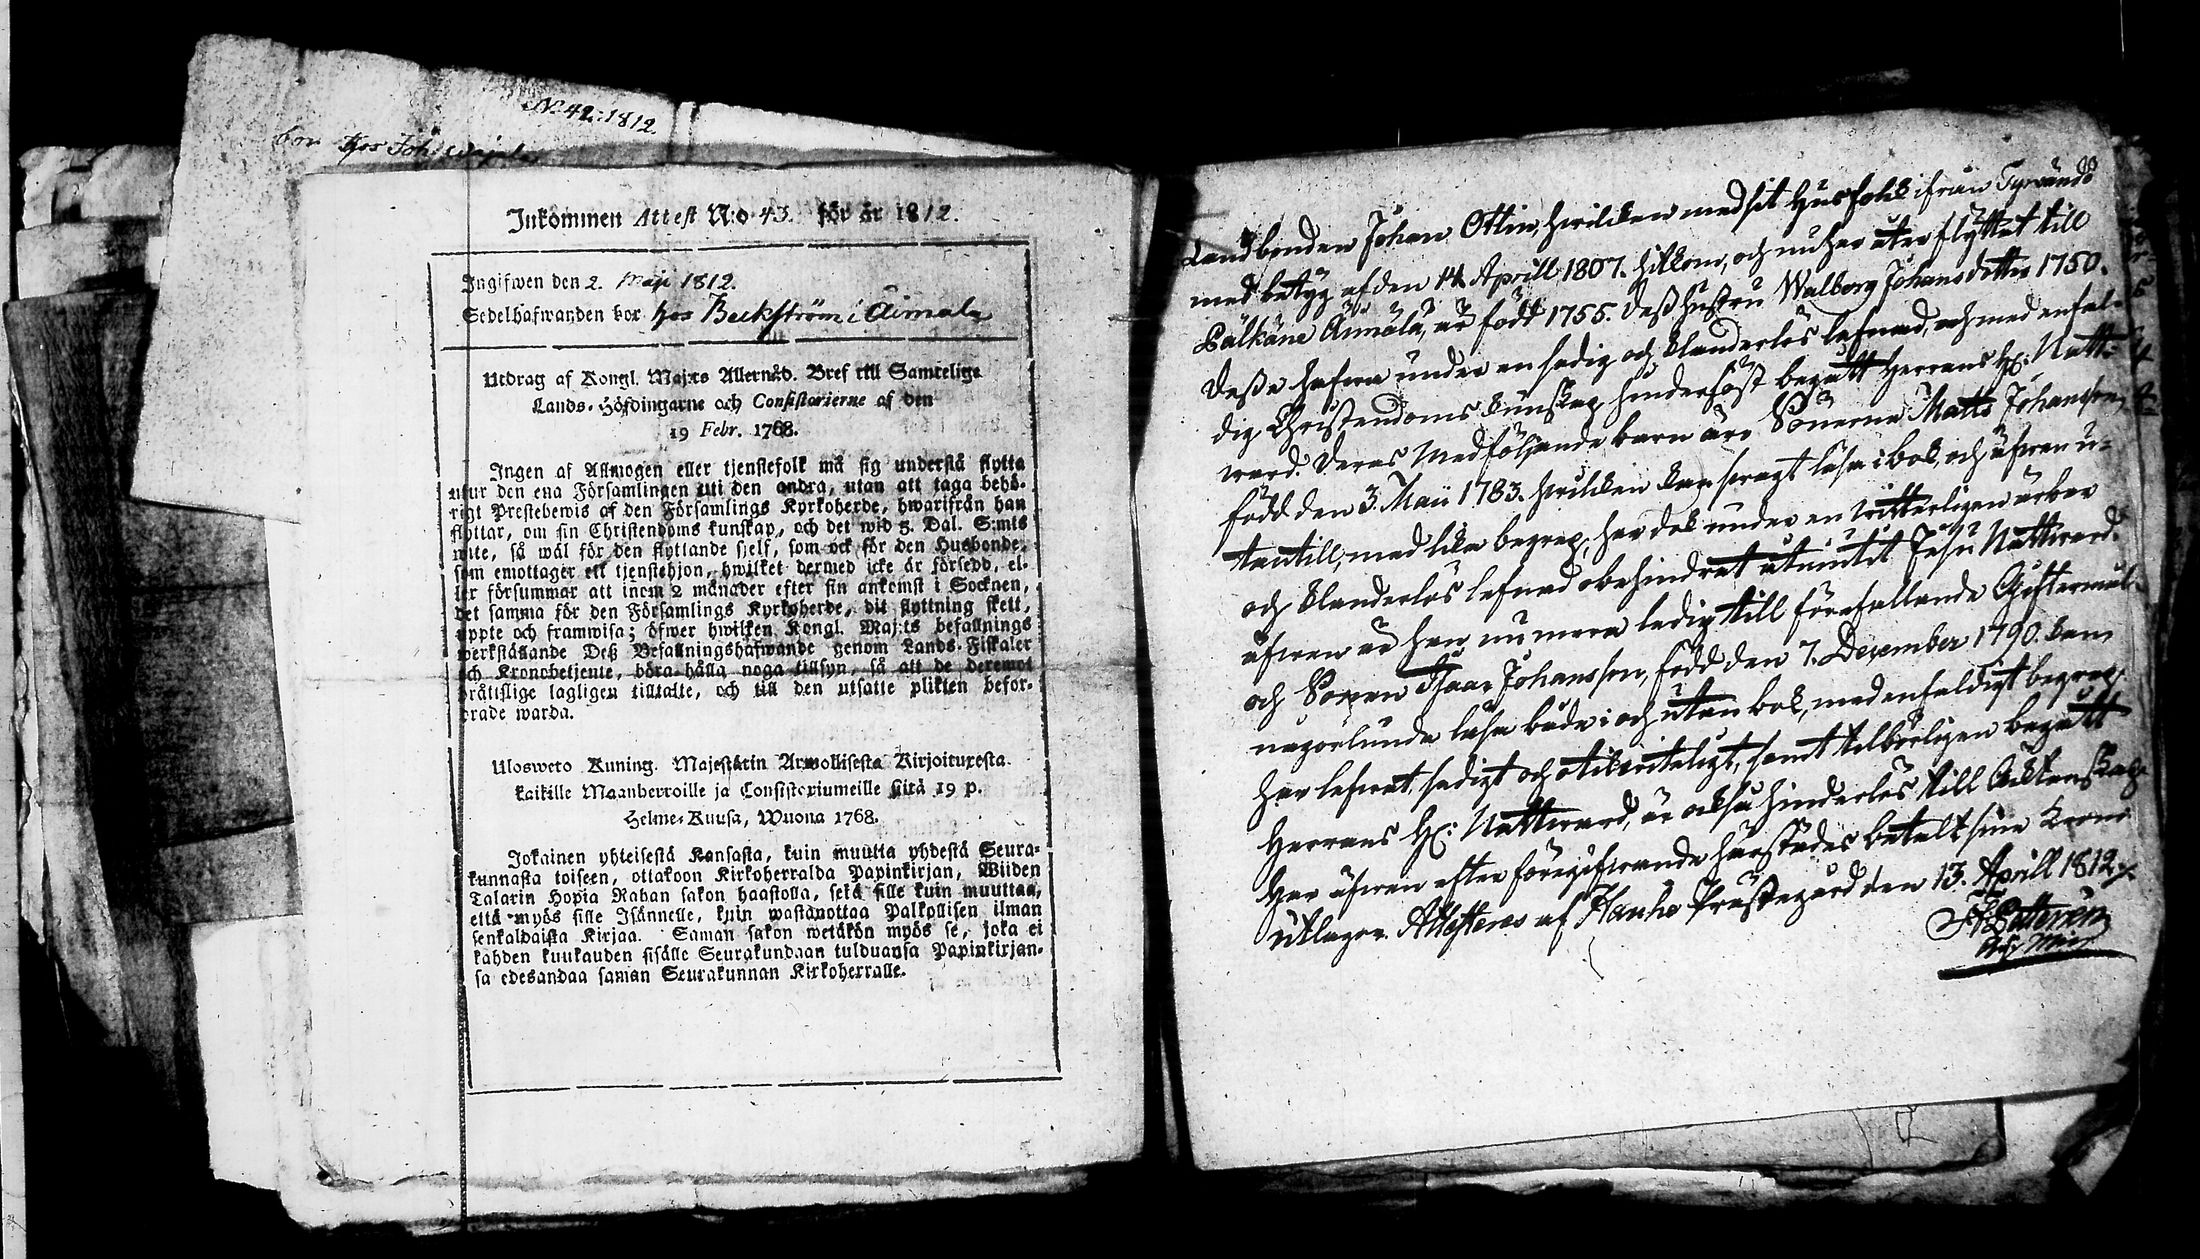 No 42. 1812.
bor hos Joh.
Inkommen Attest N:o 43. för år 1812.
Ingifwen den 2. Maji 1812.
Sedelhafwanden bor hos Beckström i Äimala
Utdrag af Kongl. Maj:ts Allernåd. Bref till Samtelige
Lands-Höfdingarne och Consistorierne af den
19 Febr. 1768.
Ingen af Allmogen eller tjenstefolk må sig understå flytta
utur den ena Församlingen uti den andra, utan att taga behö-
rigt Prestebewis af den Församlings Kyrkoherde, hwarifrån han
flyttar, om sin Christendoms kunskap, och det wid 5. Dal. S:mts
wite, så wäl för den flyttande sjelf, som ock för den Husbonde,
som emottager ett tjenstehjon, hwilket dermed icke är försedd, el-
ler försummar att inom 2 månader efter sin ankomst i Socknen,
det samma för den Församlings Kyrkoherde, dit flyttning skett,
uppte och framwisa; öfwer hwilken Kongl. Maj:ts befallnings
werkställande Deß Befallningshafwande genom Lands-Fiskaler
och Kronobetjente, böra hålla noga tillsyn, så att de deremot
bråttslige lagligen tilltalte, och till den utsatte plikten befor-
drade warda.
Ulosweto Kuning. Majestätin Armollisesta Kirjoituxesta
kaikille Maanherroille ja Consistoriumeille siitä 19 p.
Helme-Kuusa, Wuona 1768.
Jokainen yhteisestä Kansasta, kuin muutta yhdestä Seura-
kunnasta toiseen, ottakoon Kirkoherralda Papinkirjan, Wiiden
Talarin Hopia Rahan sakon haastolla, sekä sille kuin muuttaa,
että myös sille Isännelle, kuin wastanottaa Palkollisen ilman
senkaldaista Kirjaa. Saman sakon wetäkön myös se, joka ei
kahden kuukauden sisälle Seurakundaan tulduansa Papinkirjan-
sa edesandaa saman Seurakunnan Kirkoherralle.
Landbonden Johan Ottin, hwilcken med sit Husfolck ifrån Tyrvändö
med betyg af den 14 Aprill 1807. hitkom, och nu har åter flyttat till
Pälkäne Äimälä, är född 1755. Deß hustru Walborg Johansdotter 1750.
Deße hafwa under en sedig och klanderlös lefnad, och med enfal-
dig Christendoms kunskap hinderföst begått Herrans H: Natt-
ward. Deras Medföljande barn äro Sönerna Matts Johansson,
född den 3. Maii 1783. hwilcken kan swagt läsa i bok, och äfwen u-
tantill, med lika begrep, har dock under en witterligen ärbar
och klanderlös lefnad obehindrat åtniutit Jesu Nattward.
äfwen är han numera ledig till förefallande Giftermål
och Sonen Isaac Johansson, född den 7. December 1790. kan
någorlunda läsa både i och utan bok, med enfaldigt begrep,
har lefwat, sedigt och otilwiteligt, samt tilbörligen begått
Herrans H: Nattward, är också hinderlös till Äcktenskap.
Har äfwen efter föregifwande härstädes betalt sine Krono
utlagor. Attesteras af Hauho Prästegård den 13. Aprill 1812